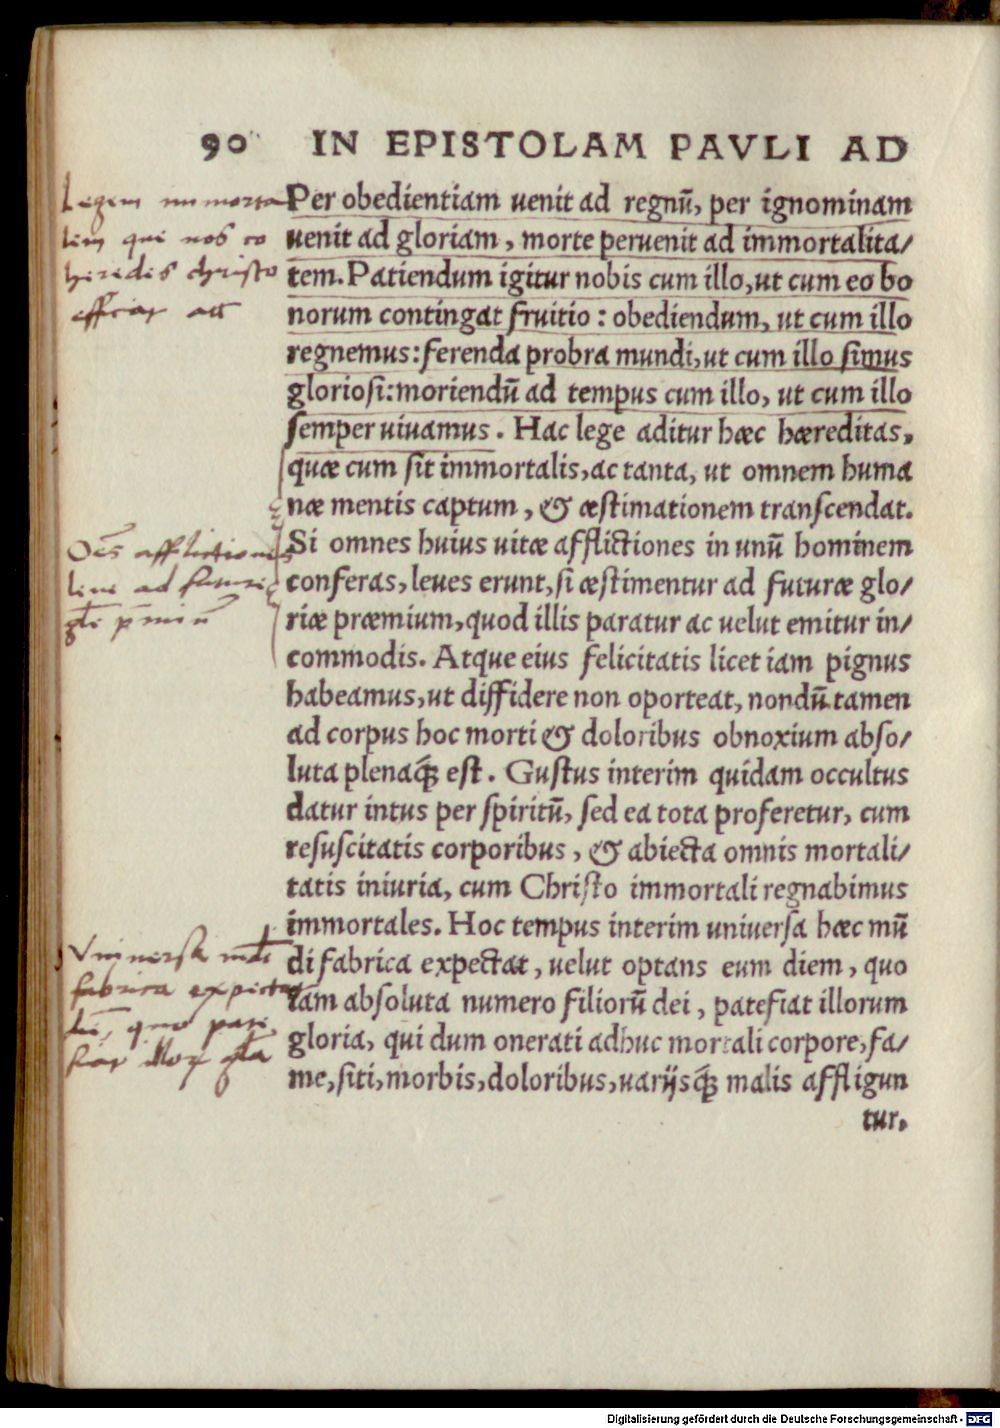 90 IN EPISTOLAM PAVLI AD
Per obedientiam uenit ad regnũ, per ignominam
uenit ad gloriam, morte peruenit ad immortalita/
tem. Patiendum igitur nobis cum illo, ut cum eo bo
norum contingat fruitio: obediendum, ut cum illo
regnemus: ferenda probra mundi, ut cum illo simus
gloriosi: moriendũ ad tempus cum illo, ut cum illo
semper uiuamus. Hac lege aditur hæc hæreditas,
quæ cum sit immortalis, ac tanta, ut omnem huma
næ mentis captum, & æstimationem transcendat.
Si omnes huius uitæ afflictiones in unũ hominem
conferas, leues erunt, si æstimentur ad futuræ glo/
riæ præmium, quod illis paratur ac uelut emitur in/
commodis. Atque eius felicitatis licet iam pignus
habeamus, ut diffidere non oporteat, nondũ tamen
ad corpus hoc morti & doloribus obnoxium abso/
luta plenaq́ꝫ est. Gustus interim quidam occultus
datur intus per spiritũ, sed ea tota proferetur, cum
resuscitatis corporibus, & abiecta omnis mortali/
tatis iniuria, cum Christo immortali regnabimus
immortales. Hoc tempus interim uniuersa hæc mũ
di fabrica expectat, uelut optans eum diem, quo
iam absoluta numero filiorũ dei, patefiat illorum
gloria, qui dum onerati adhuc mortali corpore, fa/
me, siti, morbis, doloribus, uarijsq́ꝫ malis affligun
tur.
Legem immorta
qui nos co
heredes christo
Oẽs afflictiones
ad futuri
Vniuersa
fabrica expectat
quo pate
Digitalisierung gefördert durch die Deutsche Forschungsgemeinschaft - DFG